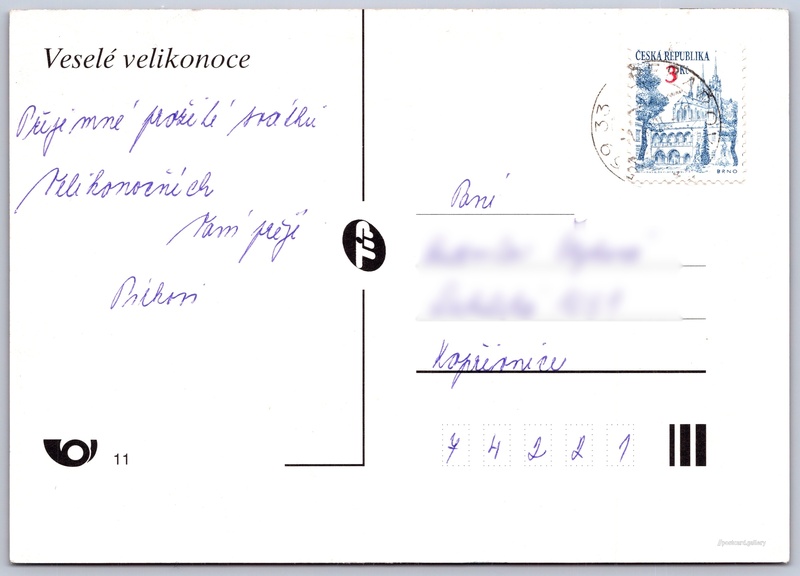 Veselé velikonoce
Příjemné prožité svátků
Velikonočních
Vam přejí
ČESKÁ REPUBLIKA
3 Kč
BRNO
Paní
Kopřivnice
7 4 2 2 1
11